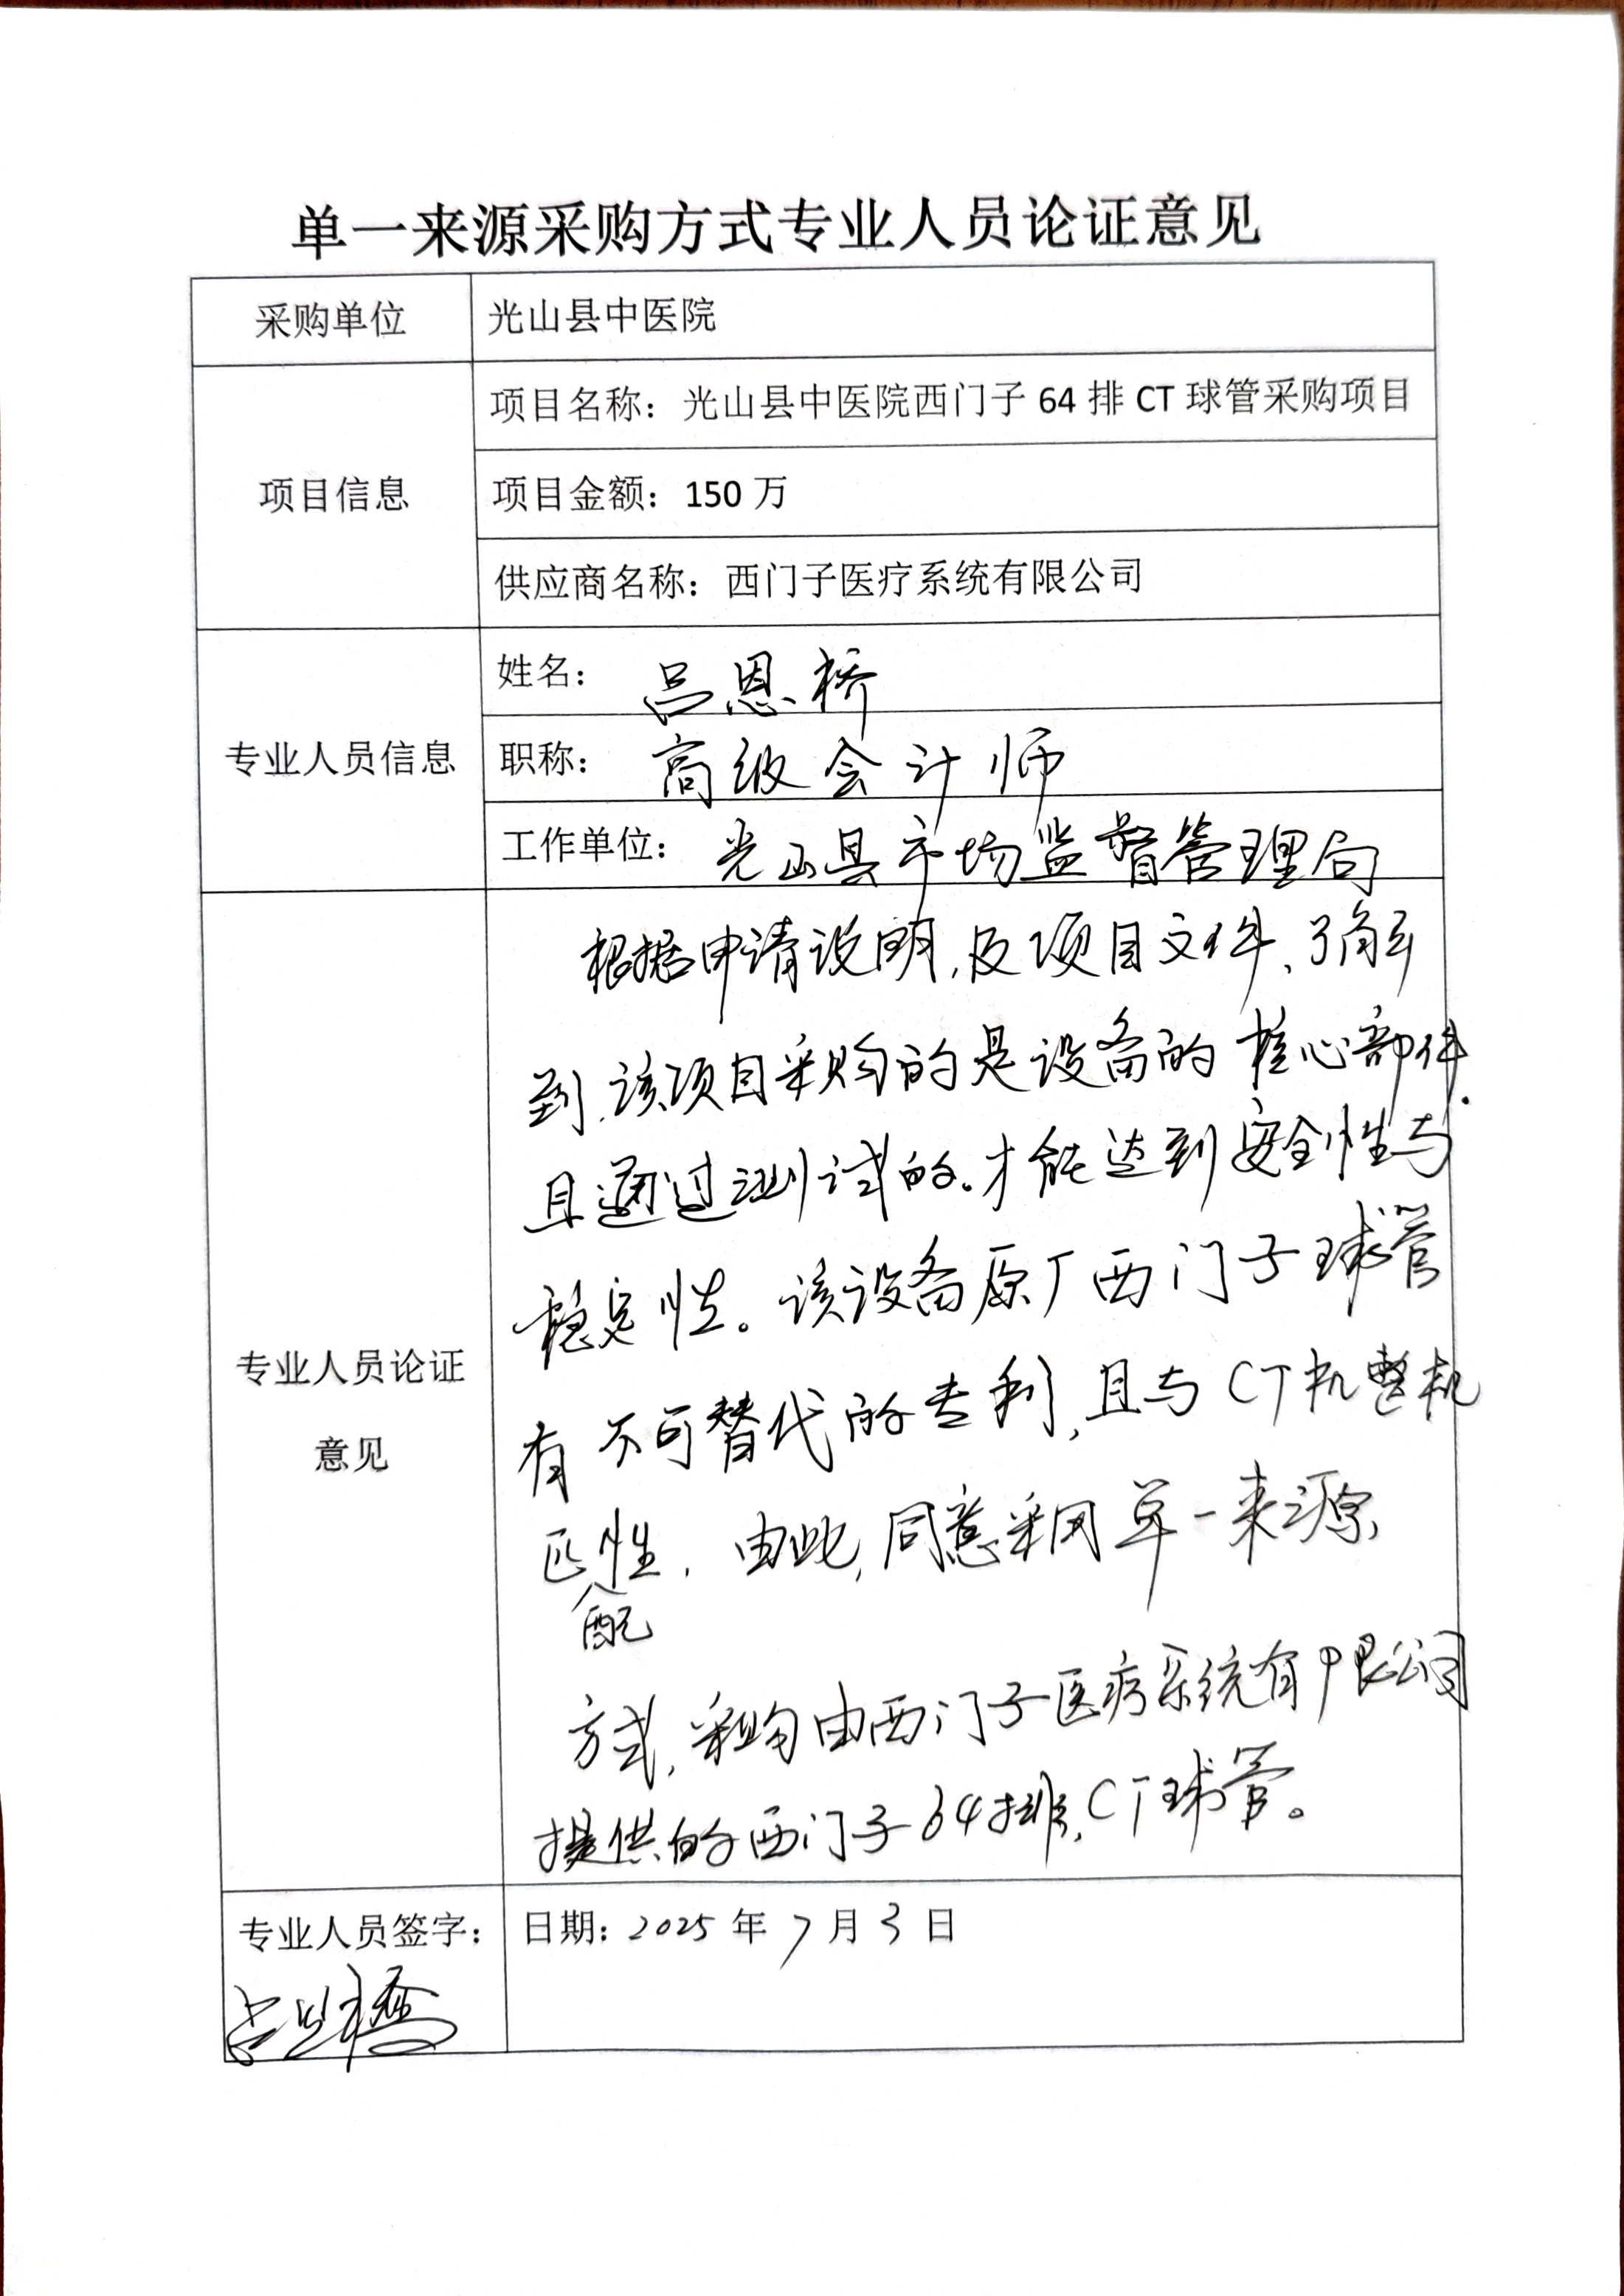 单一来源采购方式专业人员论证意见
采购单位
光山县中医院
项目信息
项目名称：光山县中医院西门子 64 排 CT 球管采购项目
项目金额：150 万
供应商名称：西门子医疗系统有限公司
专业人员信息
姓名：吕恩桥
职称：高级会计师
工作单位：光山县市场监督管理局
专业人员论证
意见
根据申请说明,及项目文件、了解
到,该项目采购的是设备的核心部件.
且通过测试的.才能达到安全性与
稳定性。该设备原厂西门子球管
有不可替代的专利,且与CT机整机
匹配性.由此,同意采用单一来源
方式,采购由西门子医疗系统有限公司
提供的西门子64排,CT球管。
专业人员签字：
吕恩桥
日期：2025 年 7 月 3 日